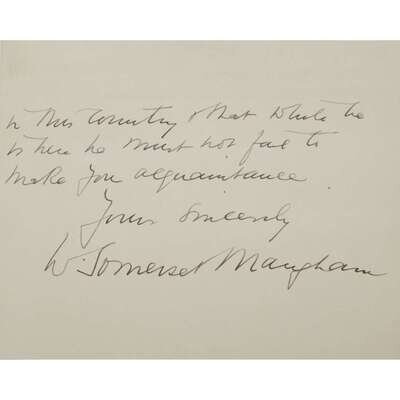 in this country & that while he
is here he must not fail to
make your acquaintance.
Yours sincerely
W. Somerset Maugham